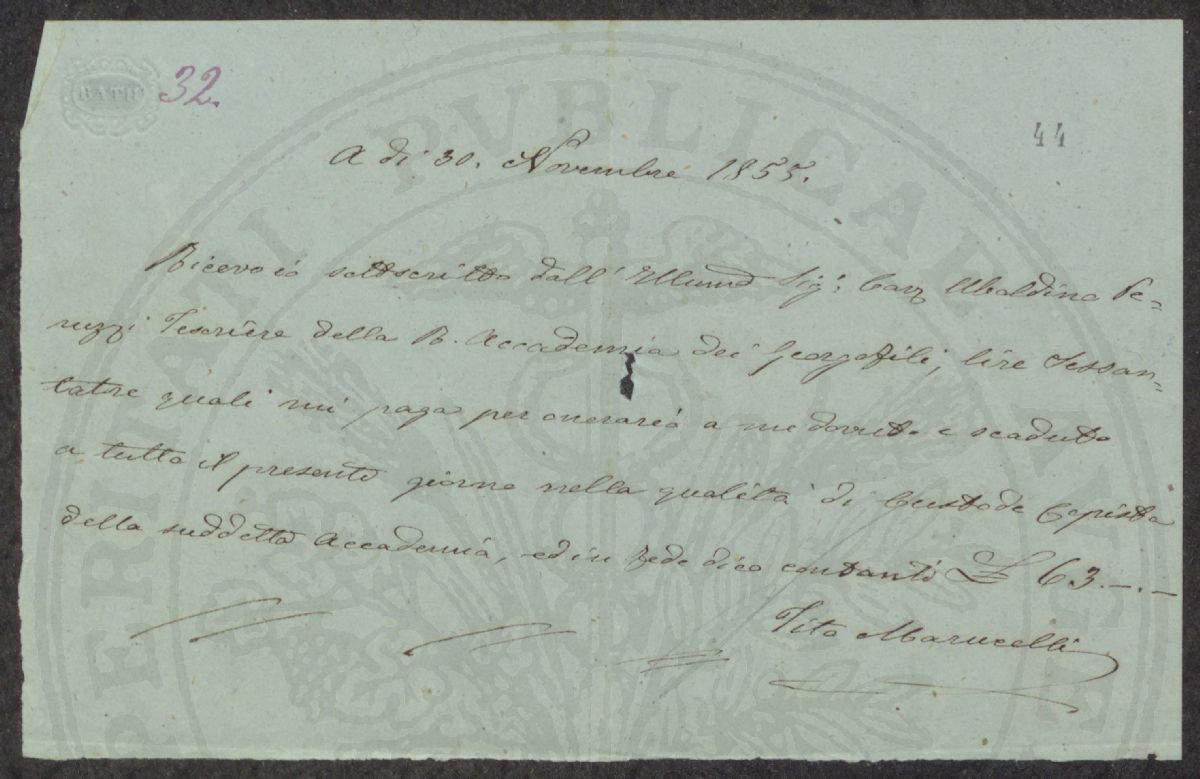 BATH
32.
44
A dì 30. Novembre 1855.
Ricevo io sottoscritto dall' Illumo Sig.: Cavr Ubaldino Pe-
ruzzi Tesoriere della R. Accademia dei Georgofili, lire Sessan-
tatre quali mi paga per onorario a me dovuto e scaduto
a tutto il presente giorno nella qualità di Custode Copista
della suddetta Accademia, ed in fede dico contanti £ 63.-.-
Tito Marucelli
PERITATI PVBLICAE AVGE